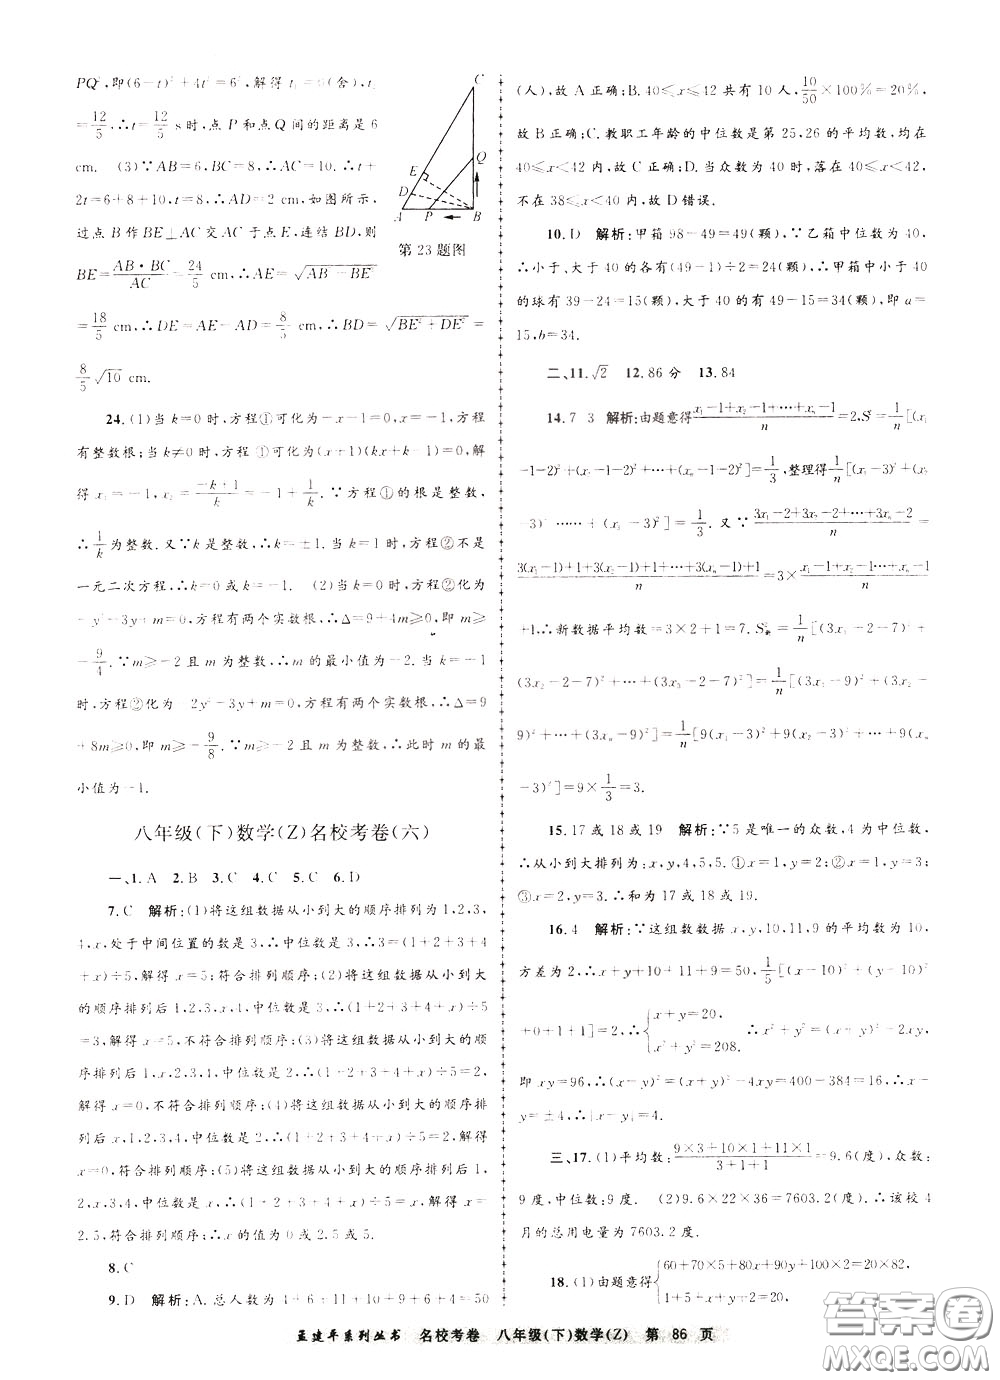 PQ²,即(6-t)²+4t²=6²,解得t₁=0(舍),t₂
=12/5,∴t=12/5 s时,点P和点Q间的距离是6
cm. (3)∵AB=6,BC=8,∴AC=10.∴t+
2t=6+8+10,t=8,∴AD=2 cm,如图所示,
过点B作BE⊥AC交于点E,连结BD,则
BE=AB·BC/AC=24/5,∴AE=√(AB²-BE²)
=18/5 cm,∴DE=AE-AD=8/5,∴BD=√(BE²+DE²)=
8/5√10 cm.
C
Q
E
D
A P B
第23题图
24.(1)当k=0时,方程①可化为-x-1=0,x=-1,方程
有整数根;当k≠0时,方程①可化为(x+1)(kx+k-1)=0,解
得x₁=-1,x₂=(-k+1)/k=-1+1/k.∵方程①的根是整数,
∴1/k为整数.又∵k是整数,∴k=±1.∵方程②不是
一元二次方程,∴k=0或k=-1. (2)当k=0时,方程②化为
-y²-3y+m=0,方程有两个实数根,∴Δ=9+4m≥0,即m≥
-9/4.∵m≥-2且m为整数,∴m的最小值为-2.当k=-1
时,方程②化为-2y²-3y+m=0,方程有两个实数根,∴Δ=9
+8m≥0,即m≥-9/8.∵m≥-2且m为整数,∴此时m的最
小值为-1.
八年级(下)数学(Z)名校考卷(六)
一、1.A 2.B 3.C 4.C 5.C 6.D
7.C 解析:(1)将这组数据从小到大的顺序排列为1,2,3,
4,x,处于中间位置的数是3,∴中位数是3,∴(1+2+3+4
+x)÷5=3,解得x=5;符合排列顺序;(2)将这组数据从小到大
的顺序排列后1,2,3,x,4,中位数是3,∴(1+2+3+4+x)÷5
=3,解得x=5,不符合排列顺序;(3)将这组数据从小到大的顺
序排列后1,x,2,3,4,中位数是2,∴(1+2+3+4+x)÷5=2,
解得x=0,不符合排列顺序;(4)将这组数据从小到大的顺序排
列后x,1,2,3,4,中位数是2,∴(1+2+3+4+x)÷5=2,解得
x=0,符合排列顺序;(5)将这组数据从小到大的顺序排列后
1,2,x,3,4,中位数是x,∴(1+2+3+4+x)÷5=x,解得x=
2.5,符合排列顺序;∴x的值为0或2.5或5.
8.C
9.D 解析:A.总人数为4+6+11+10+9+6+4=50
(人),故A正确;B.40≤x≤42共有10人,10/50×100%=20%,
故B正确;C.教职工年龄的中位数是第25,26的平均数,均在
40≤x≤42内,故C正确;D.当众数为40时,落在40≤x≤42,
不在38≤x≤40内,故D错误.
10.D 解析:甲箱98-49=49(颗),∵乙箱中位数为40,
∴小于、大于40的各有(49-1)÷2=24(颗),∴甲箱中小于40
的球有39-24=15(颗),大于40的有49-15=34(颗),即a=
15,b=34.
二、11.√2 12.86分 13.84
14.7 3 解析:由题意得(x₁-1+x₂-1+…+xₙ-1)/n=2,S²=1/n[(x₁
-1-2)²+(x₂-1-2)²+…+(xₙ-1-2)²]=1/3,整理得1/n[(x₁-3)²+(x₂
-3)²……+(xₙ-3)²]=1/3.又∵(3x₁-2+3x₂-2+…+3xₙ-2)/n=
(3(x₁-1)+1+3(x₂-1)+1+…+3(xₙ-1)+1)/n=3×(x₁-1+x₂-1+…+xₙ-1)/n
+1∴新数据平均数=3×2+1=7.S²新=1/n[(3x₁-2-7)²+
(3x₂-2-7)²+…+(3xₙ-2-7)²]=1/n[(3x₁-9)²+(3x₂-
9)²+…+(3xₙ-9)²]=1/n[9(x₁-3)²+9(x₂-3)²+…+9(xₙ
-3)²]=9×1/3=3.
15.17或18或19 解析:∵5是唯一的众数,4为中位数,
∴从小到大排列为:x,y,4,5,5.①x=1,y=2;②x=1,y=3;
③x=2,y=3.∴和为17或18或19.
16.4 解析:∵这组数数据x,y,10,11,9的平均数为10,
方差为2∴x+y+10+11+9=50,1/5[(x-10)²+(y-10)²
+0+1+1]=2,∴{x+y=20, x²+y²=208. ∴x²+y²=(x+y)²-2xy=208.
即xy=96,∴(x-y)²=(x+y)²-4xy=400-384=16,∴x-
y=±4,∴|x-y|=4.
三、17.(1)平均数:(9×3+10×1+11×1)/(3+1+1)=9.6(度),众数:
9度,中位数:9度. (2)9.6×22×36=7603.2(度).∴该校4
月的总用电量为7603.2度.
18.(1)由题意得{60+70×5+80x+90y+100×2=20×82, 1+5+x+y+2=20.
孟建平系列丛书 名校考卷 八年级(下)数学(Z) 第 86 页
答案圈
MXQE.COM